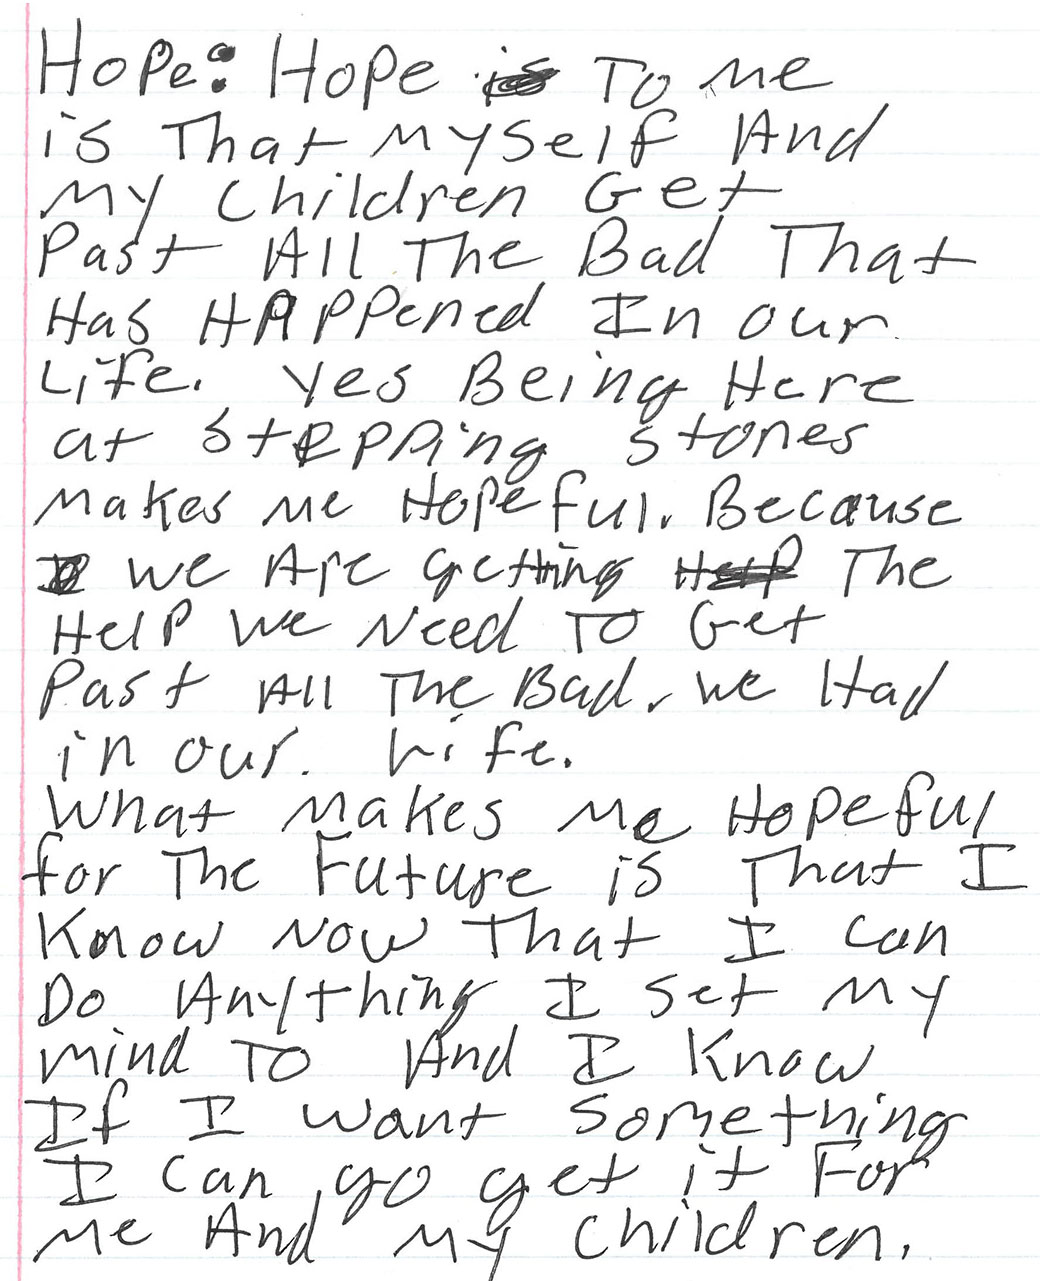 Hope: Hope To me
is That Myself And
My Children Get
Past All The Bad That
Has HAPPened In our
Life. Yes Being Here
at Stepping Stones
Makes Me Hopeful. Because
we Are getting The
Help We Need To Get
Past All The Bad. We Had
in our. Life.
What Makes Me Hopeful
for The Future is That I
Know Now That I can
Do Anything I Set My
Mind To And I Know
If I want Something
I can go get it For
Me And My Children.